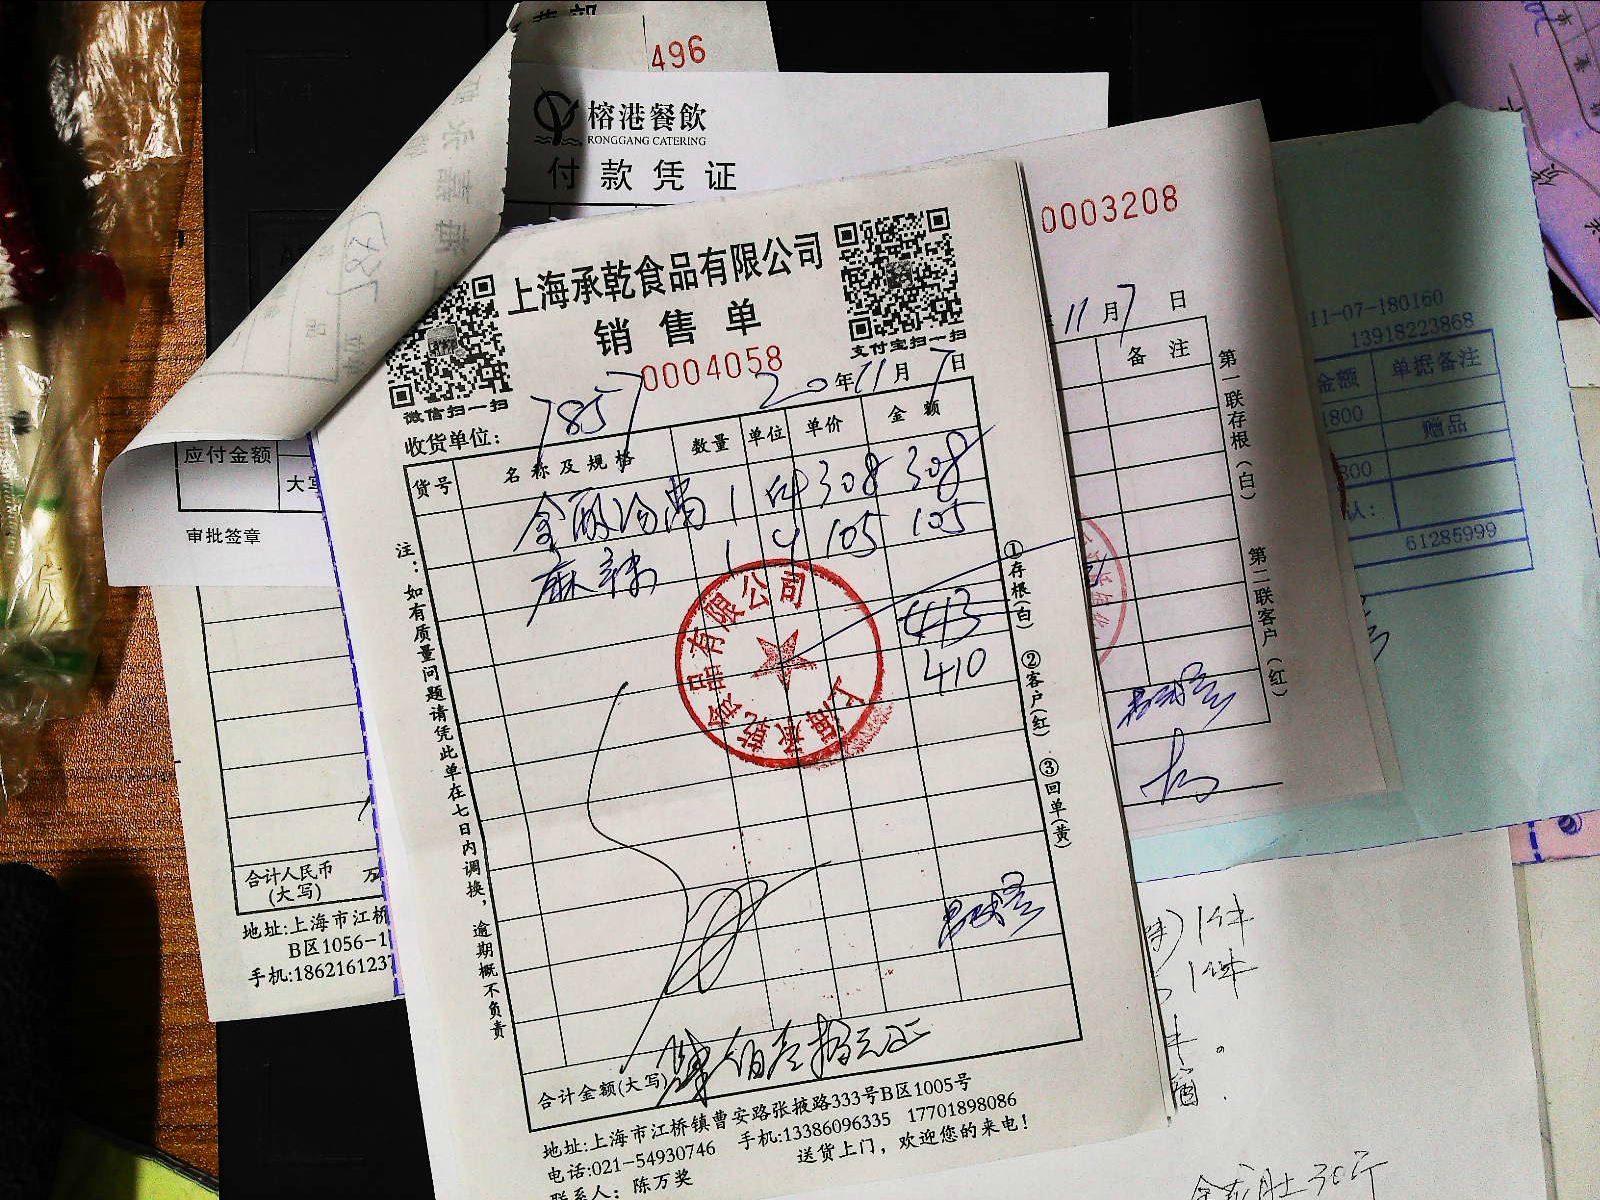 496
榕港餐飲
RONGGANG CATERING
付款凭证
上海承乾食品有限公司
销售单
0004058
微信扫一扫
支付宝扫一扫
20年11月7日
收货单位: 7857
货号 名称及规格 数量 单位 单价 金额
1 件 308 308
麻辣 1 105 105
413
410
上海承乾食品有限公司
注:如有质量问题请凭此单在七日内调换,逾期概不负责
①存根(白) ②客户(红) ③回单(黄)
合计金额(大写)肆佰壹拾元正
地址:上海市江桥镇曹安路张掖路333号B区1005号
电话:021-54930746 手机:13386096335 17701898086
联系人:陈万奖 送货上门,欢迎您的来电!
0003208
11月7日
备注
第一联存根(白) 第二联客户(红)
11-07-180160
13918223868
金额 单据备注
1800
赠品
800
认:
61285999
应付金额
大写
审批签章
合计人民币
(大写) 万
地址:上海市江桥
B区1056-1
手机:1862161237
1件
1件
30斤